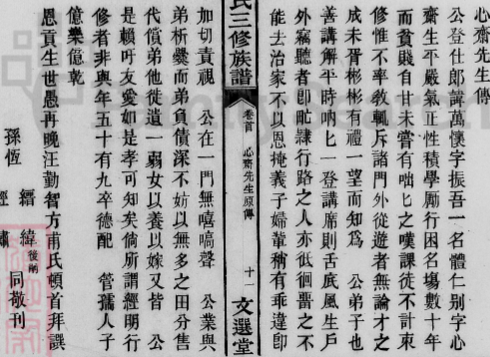 心齋先生傳
公登仕郎講萬懷字振吾一名體仁别字心
齋生平嚴氣正性積學勵行困名塲數十年
而貧賤自甘未嘗有咄匕之嘆課徒不計束
修惟不率教輒斥諸門外從遊者無論才之
成未胥彬彬有禮一望而知爲　公弟子也
善講解平時吶匕一登講席則舌底風生戶
外竊聽者即眦隸行路之人亦低徊嘗之不
能去治家不以恩掩義子婦輩稍有乖違即
氏三修族譜
卷首　心齋先生原傳
十一
文選堂
加切責視　公在一門無嘻嗃聲　公業與
弟析爨而弟負債深不妨以無多之田分售
代償弟他徙遺一弱女以養以嫁又皆　公
是賴吁友愛如是孝可知矣倘所謂經明行
修者非與年五十有九卒德配　管孺人子
億樂億乾
恩貢生世愚再晚汪勤智方甫氏頓首拜譔
孫恆　經　緒緯後綱　繡　同敬刊